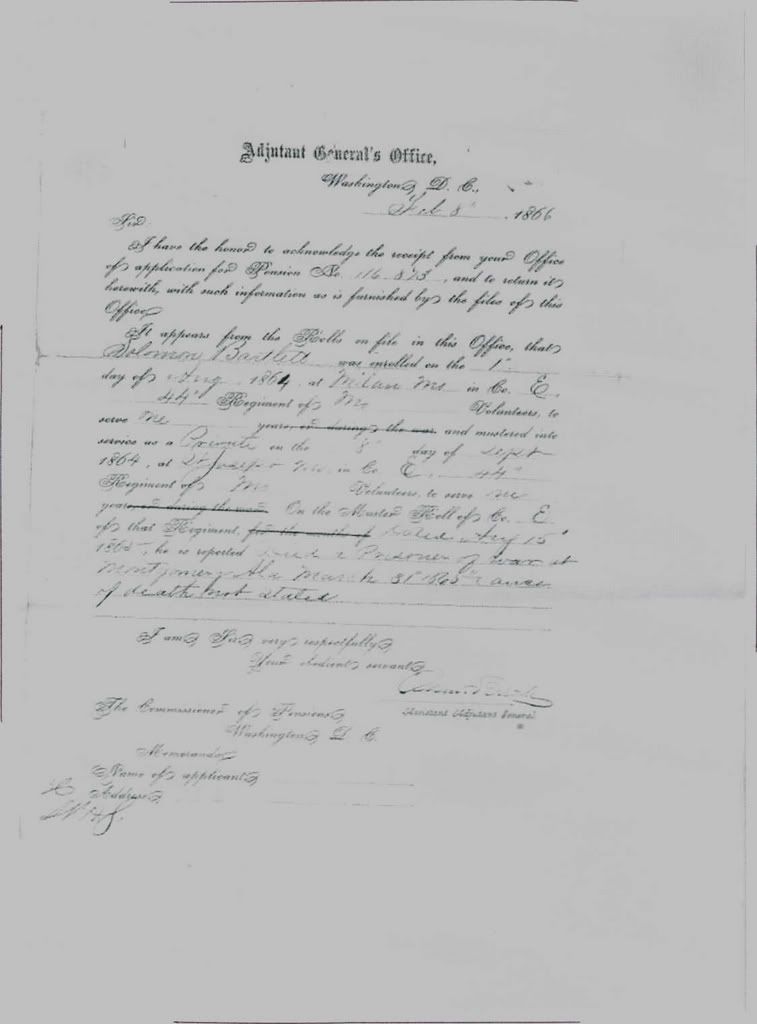 Adjutant General's Office,
Washington, D. C.,
Feb 8" , 1866
Sir:
I have the honor to acknowledge the receipt from your Office
of application for Pension No. 116.873, and to return it
herewith, with such information as is furnished by the files of this
Office.
It appears from the Rolls on file in this Office, that
Solomon Bartlett was enrolled on the 1"
day of Aug, 1864, at Milan Mo in Co. E,
44" Regiment of Mo Volunteers, to
serve years, or during the war, and mustered into
service as a Private on the day of Sept
1864, at St Joseph Mo, in Co. E, 44"
Regiment of Mo Volunteers, to serve
years, or during the war. On the Muster Roll of Co. E
of that Regiment, for the month of dated Aug 15"
1865, he is reported Died a Prisoner of war at
Montgomery Ala March 31" 1865 cause
of death not stated
I am, Sir, very respectfully,
Your obedient servant,
Assistant Adjutant General
The Commissioner of Pensions,
Washington, D. C.
Memoranda
Name of applicant,
Address,